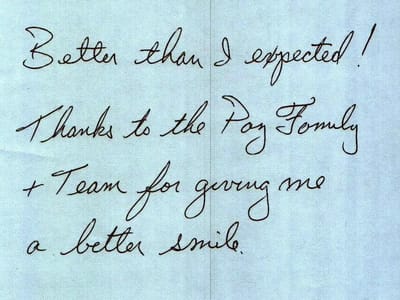 Better than I expected!
Thanks to the Pay Family
+ Team for giving me
a better smile.